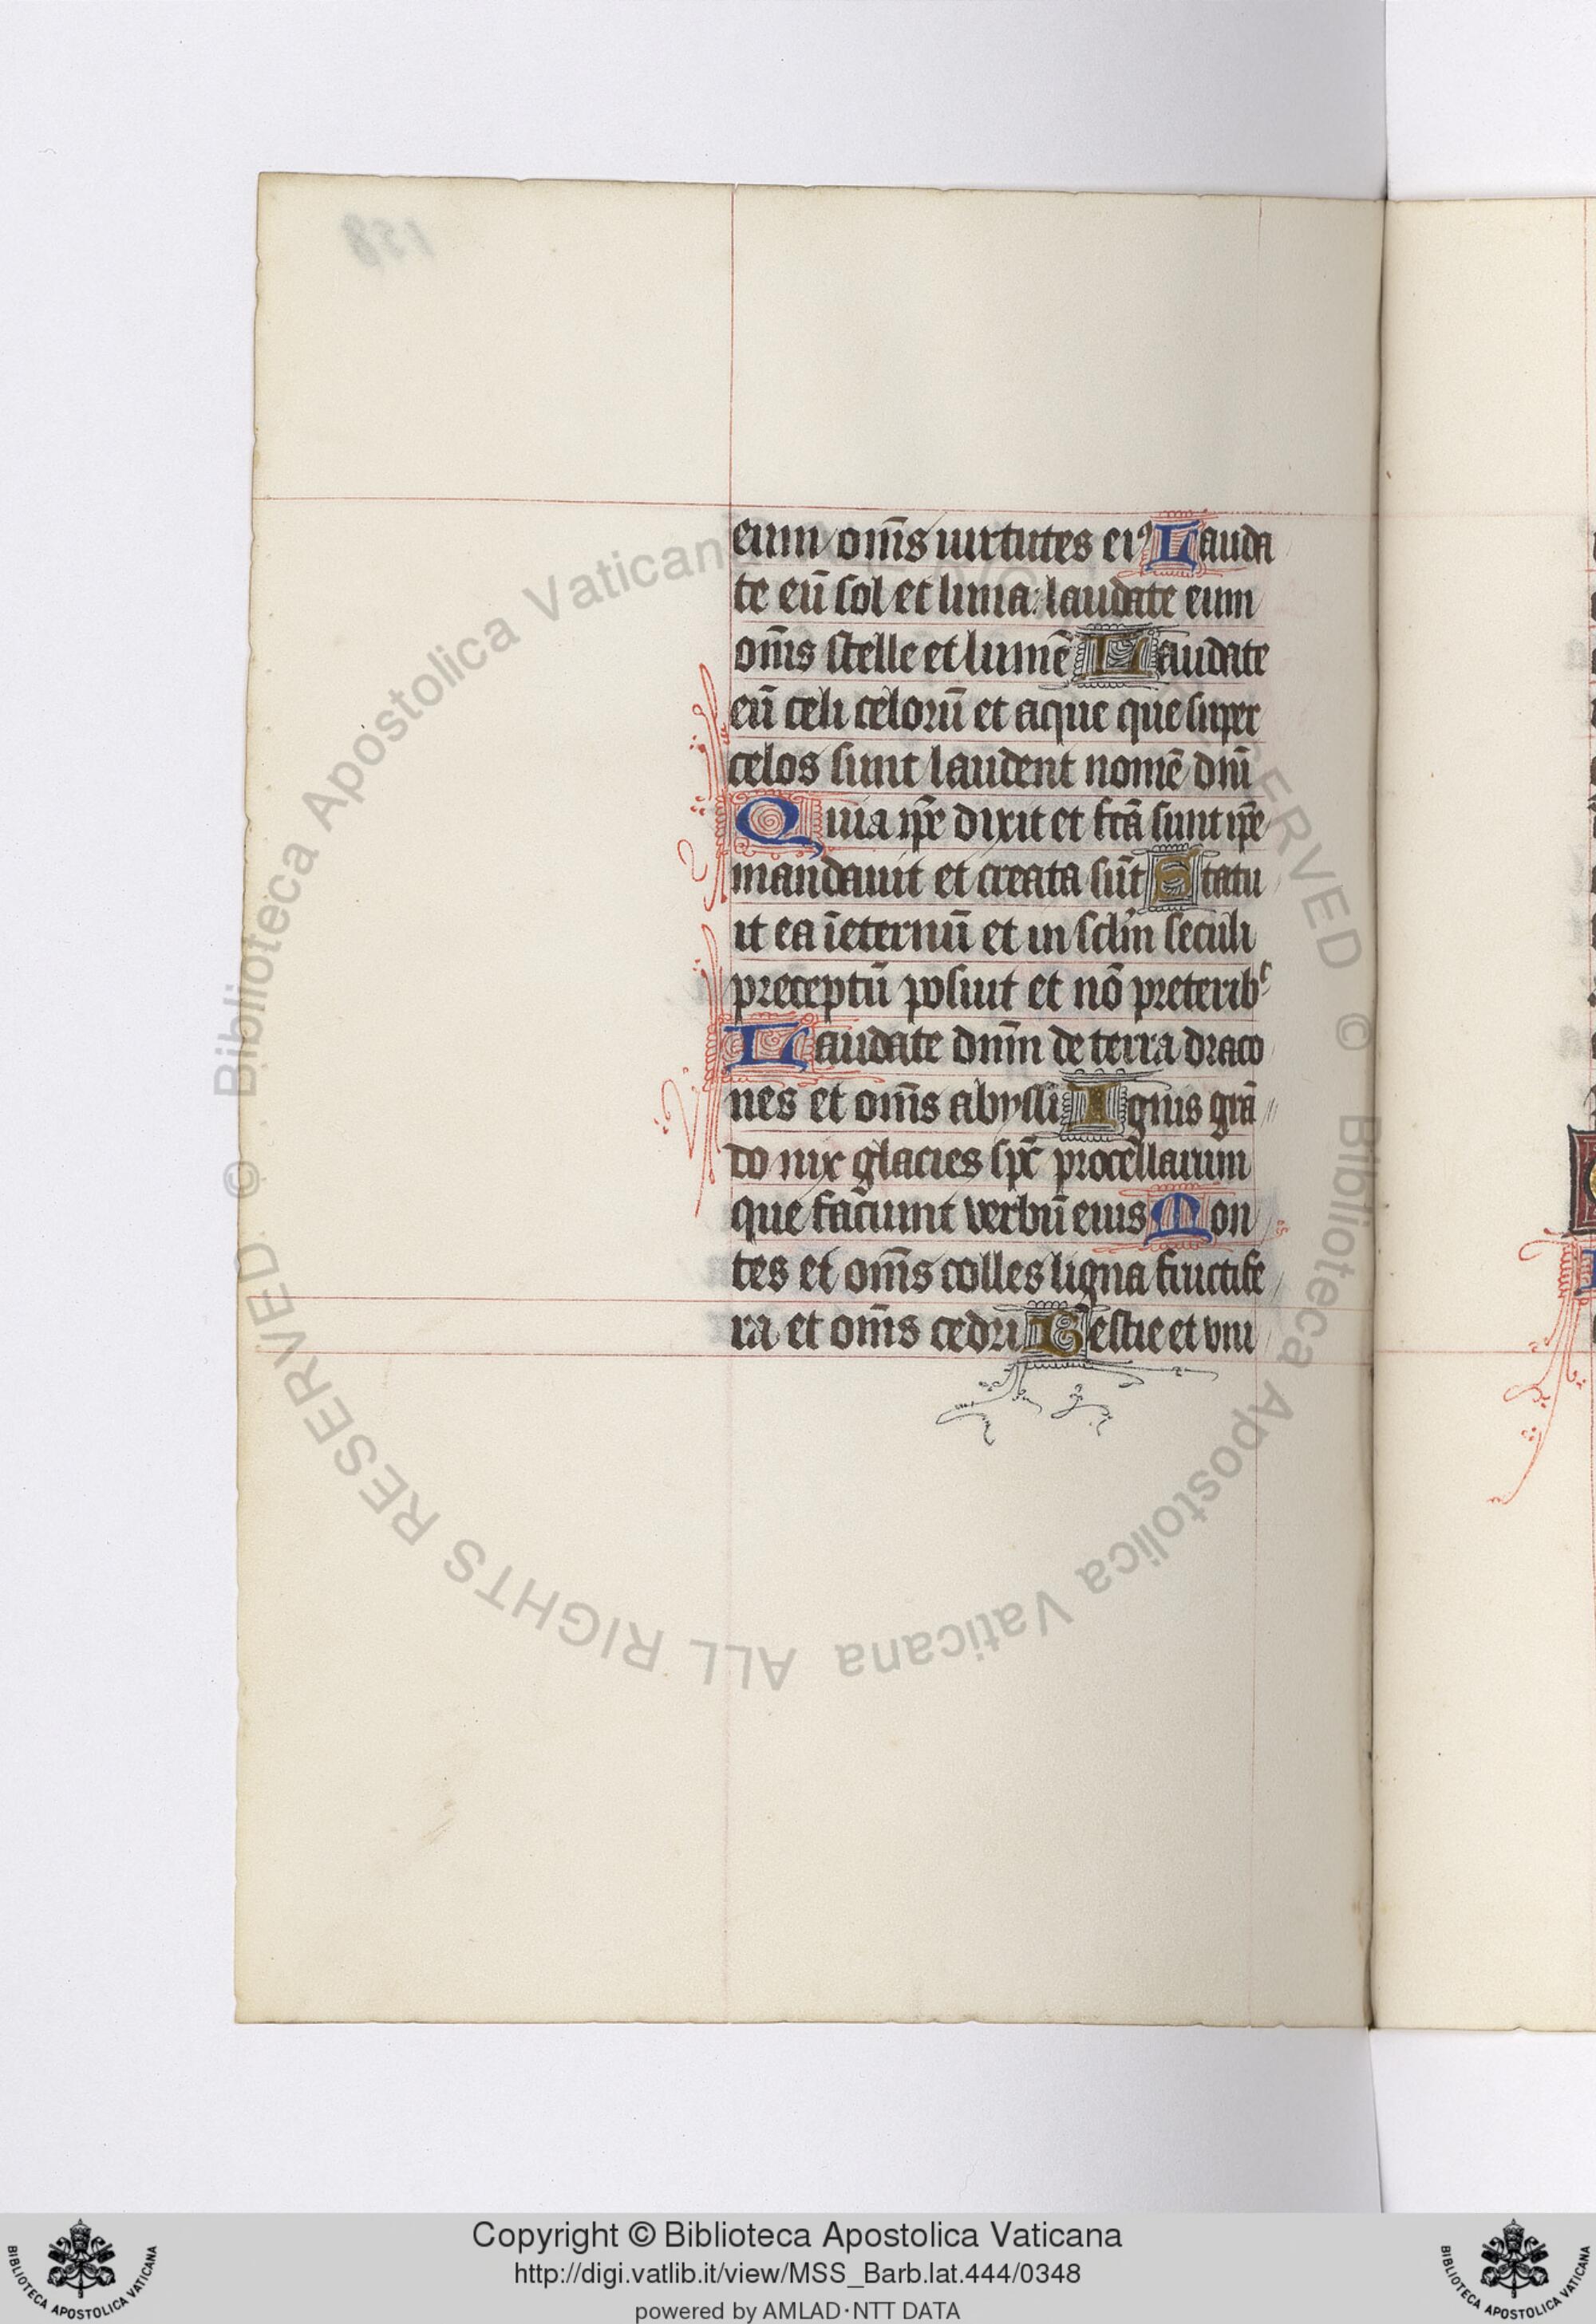 eum om̅s uirtutes eiꝰ Lauda
te eū sol et luna: laudate eum
om̅s stelle et lumē Laudate
eū celi celorū et aque que super
celos sunt laudent nomē dn̅i
Quia ip̅e dixit et fc̅a sunt ip̅e
mandauit et creata sūt Statu
it ea īeternū et in sclm̅ seculi
preceptū posuit et nō preteribᵗ
Laudate dnm̅ de terra draco
nes et om̅s abyssi Ignis grā
do nix glacies spc̅ procellarum
que faciunt verbū eius Mon
tes et om̅s colles ligna fructife
ra et om̅s cedri Bestie et vni
© Biblioteca Apostolica Vaticana ALL RIGHTS RESERVED © Biblioteca Apostolica Vaticana ALL RIGHTS RESERVED
BIBLIOTECA APOSTOLICA VATICANA
Copyright © Biblioteca Apostolica Vaticana
http://digi.vatlib.it/view/MSS_Barb.lat.444/0348
powered by AMLAD·NTT DATA
BIBLIOTECA APOSTOLICA VATICANA